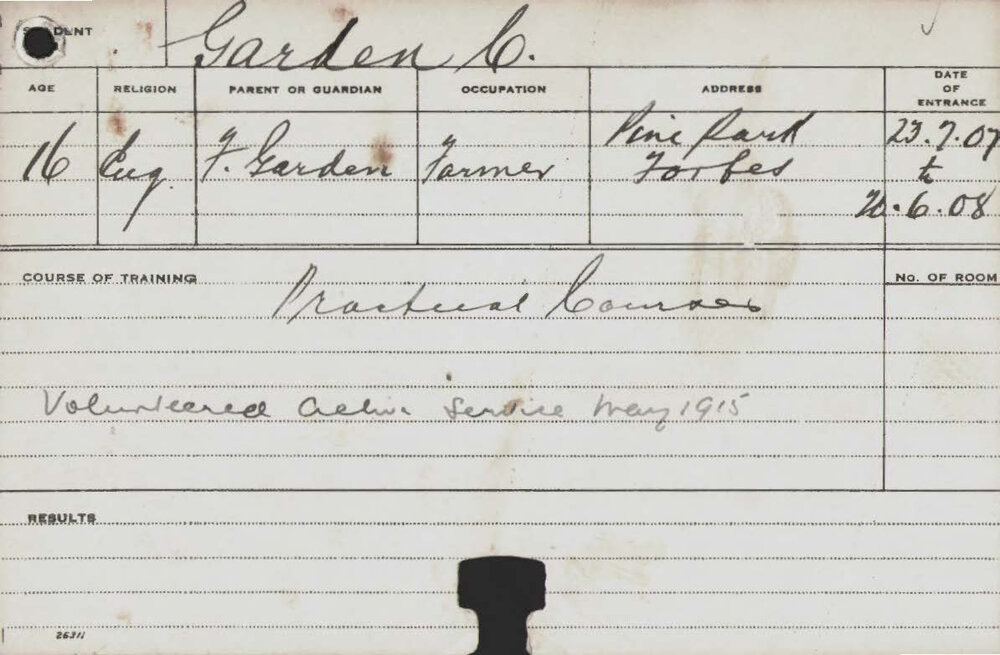 STUDENT Garden C.
AGE RELIGION PARENT OR GUARDIAN OCCUPATION ADDRESS DATE OF ENTRANCE
16 Eng. F. Garden Farmer Pine Park Forbes 23.7.07 to 20.6.08
COURSE OF TRAINING No. OF ROOM
Practical Course
Volunteered Active Service May 1915
RESULTS
26311